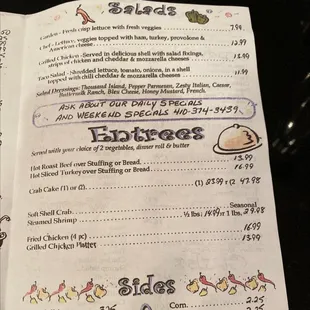 Salads
Garden - Fresh crisp lettuce with fresh veggies 7.99
Chef - Lettuce, veggies topped with ham, turkey, provolone &
American cheese 12.99
Grilled Chicken - Served in delicious shell with salad fixings,
strips of chicken and cheddar & mozzarella cheeses 12.99
Taco Salad - Shredded lettuce, tomato, onions, in a shell
topped with chili cheddar & mozzarella cheeses 11.99
Salad Dressings: Thousand Island, Pepper Parmesan, Zesty Italian, Caesar,
Buttermilk Ranch, Bleu Cheese, Honey Mustard, French.
ASK ABOUT OUR DAILY SPECIALS
AND WEEKEND SPECIALS 410-374-3439
Entrees
Served with your choice of 2 vegetables, dinner roll & butter
Hot Roast Beef over Stuffing or Bread 15.99
Hot Sliced Turkey over Stuffing or Bread. 16.99
Crab Cake (1) or (2) (1) 23.99 + (2) 47.98
Soft Shell Crab Seasonal
Steamed Shrimp ½ lbs: 14.99 or 1 lbs. 29.98
Fried Chicken (4 pc) 16.99
Grilled Chicken Platter 13.99
Sides
Corn 2.25
2.25